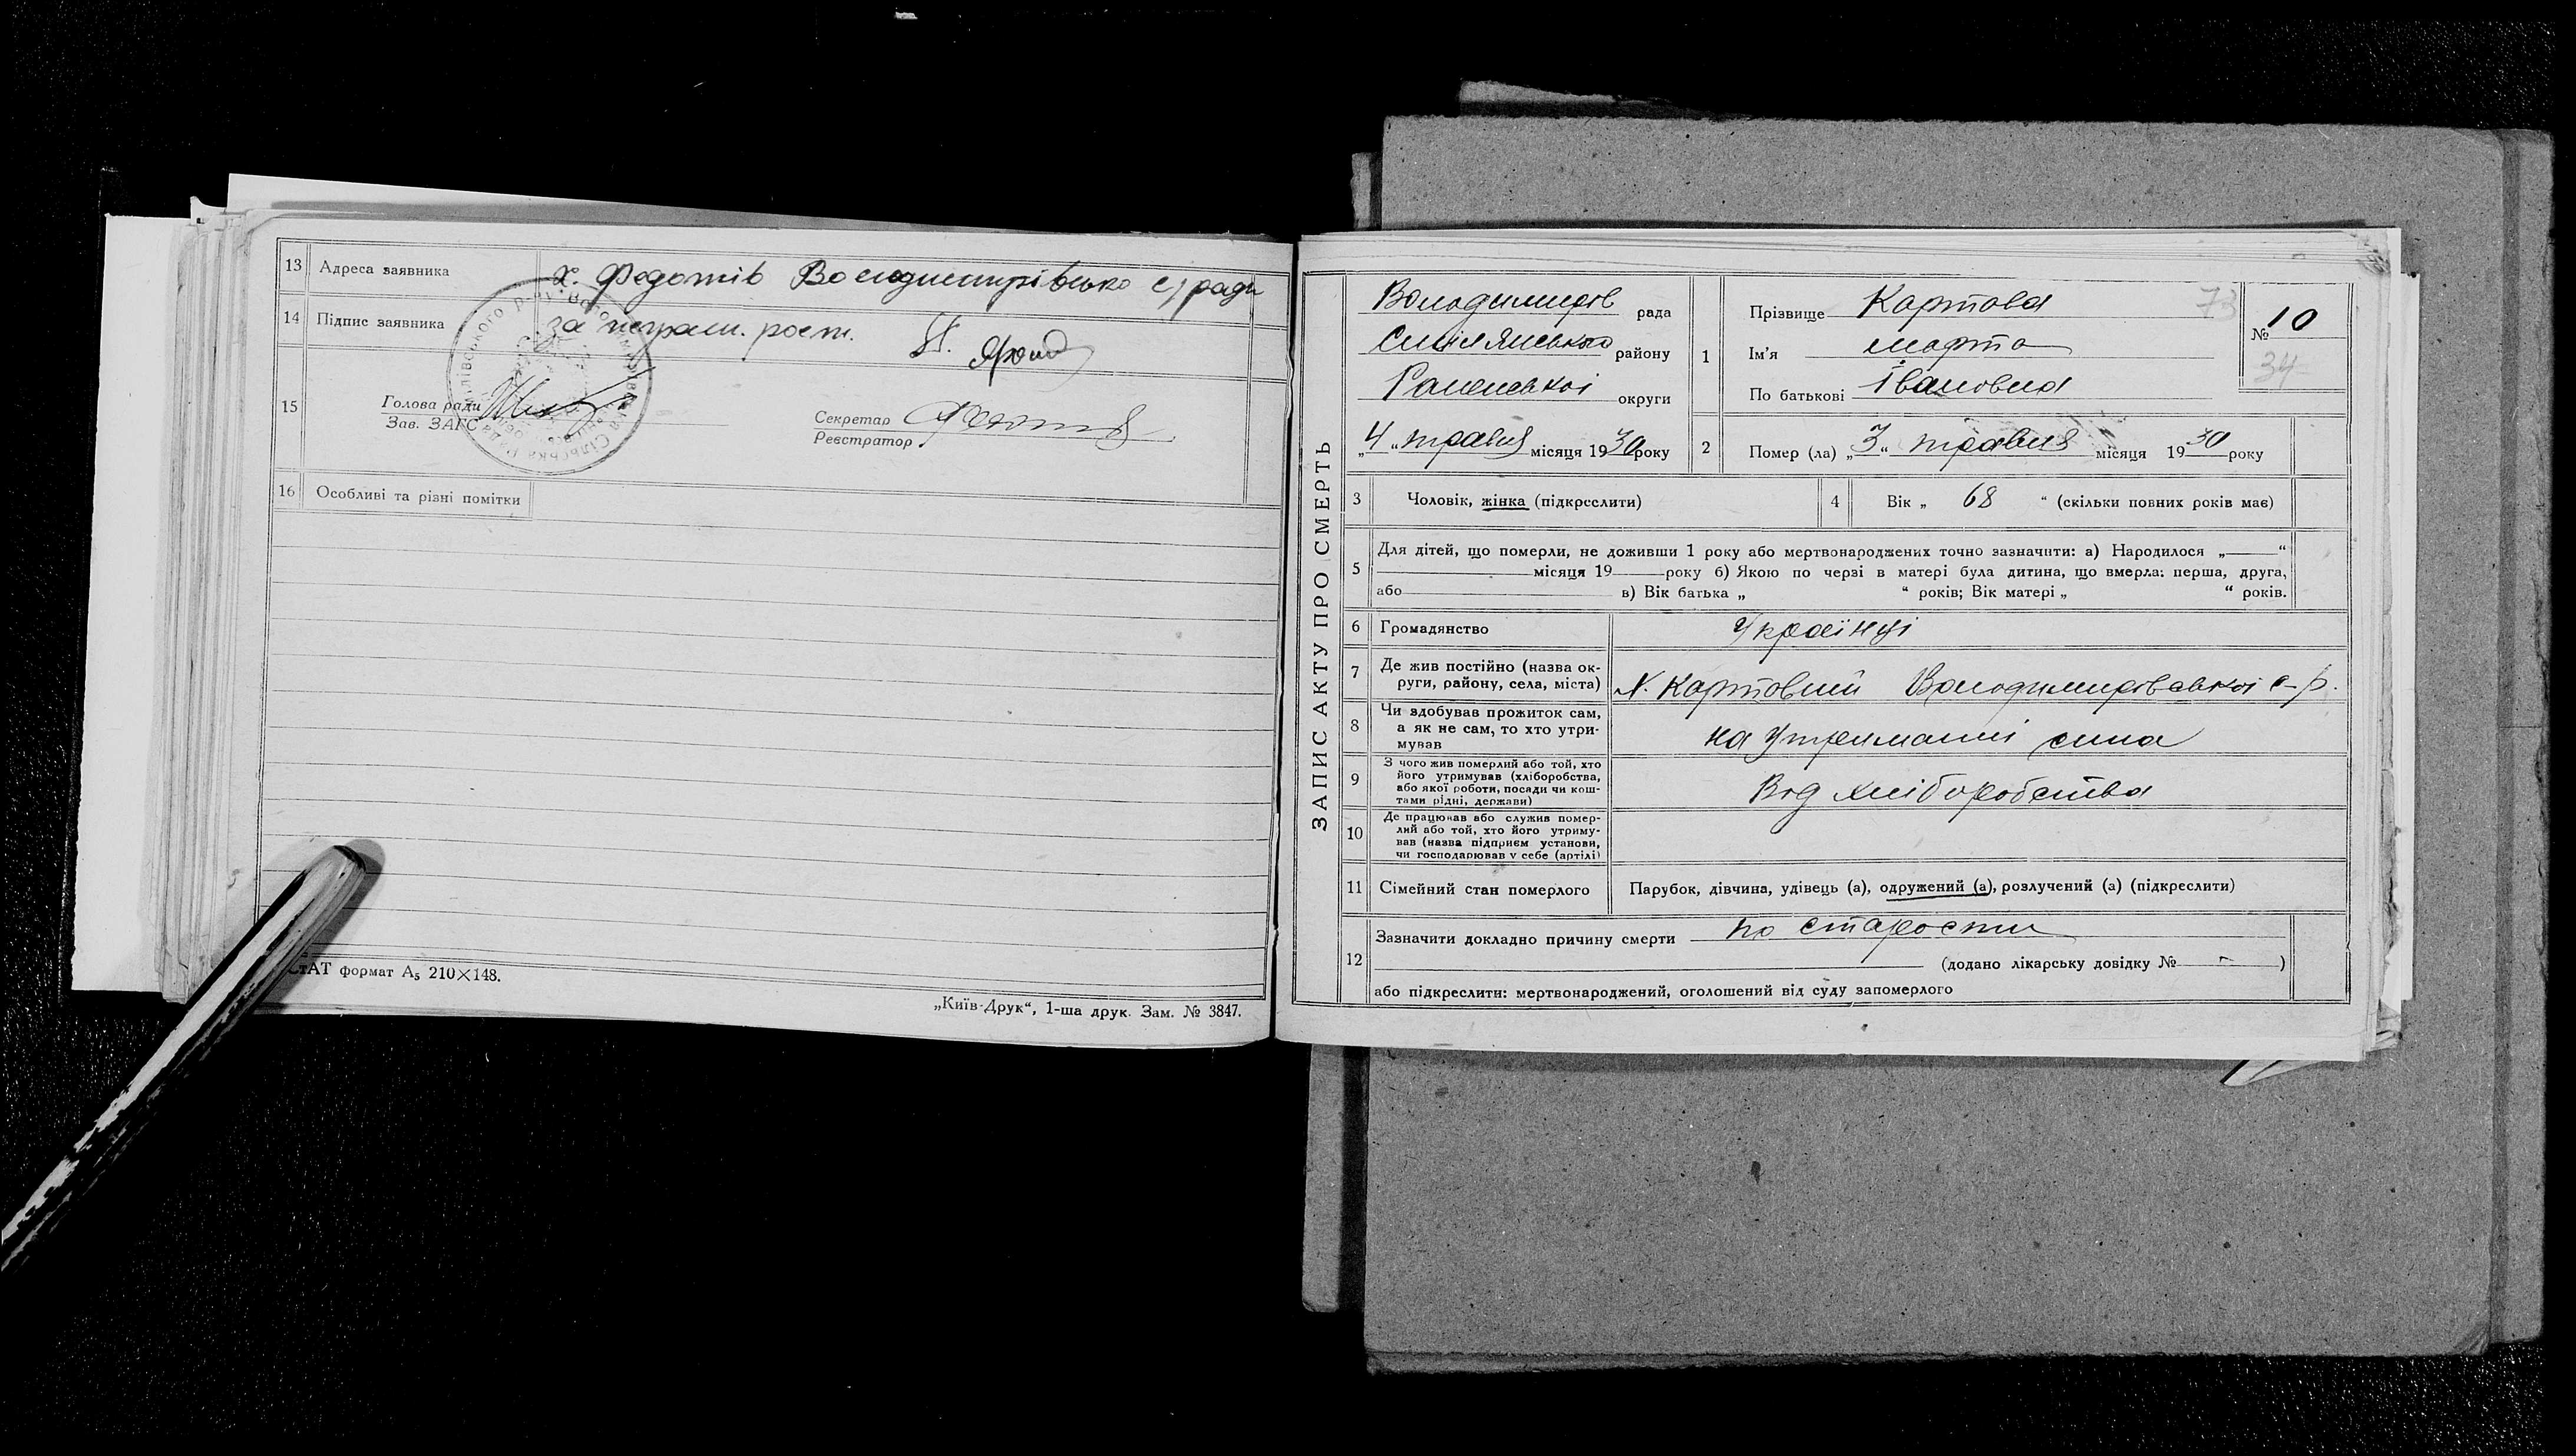 13 Адреса заявника х. Федотів Володимирівсько с/ради
14 Підпис заявника за неграм. розп. Я.
15 Голова ради
Зав. ЗАГС
Секретар
Реєстратор
16 Особливі та різні помітки
СтАТ формат А₅ 210×148.
„Київ-Друк“, 1-ша друк. Зам. № 3847.
ЗАПИС АКТУ ПРО СМЕРТЬ
Володимирів рада
району
Роменської округи
„4“ травня місяця 1930 року
1 Прізвище Картова
Ім'я марта
По батькові Івановна
73
№ 10
34
2 Помер (ла) „3“ травня місяця 1930 року
3 Чоловік, жінка (підкреслити)
4 Вік „ 68 “ (скільки повних років має)
5 Для дітей, що померли, не доживши 1 року або мертвонароджених точно зазначити: а) Народилося „ “
місяця 19 року б) Якою по черзі в матері була дитина, що вмерла: перша, друга,
або в) Вік батька „ “ років; Вік матері „ “ років.
6 Громадянство Українці
7 Де жив постійно (назва ок-
руги, району, села, міста) х. Картовий Володимирівської с-р.
8 Чи здобував прожиток сам,
а як не сам, то хто утри-
мував на утриманні сина
9 З чого жив померлий або той, хто
його утримував (хліборобства,
або якої роботи, посади чи кош-
тами рідні, держави) Вод хліборобства
10 Де працював або служив помер-
лий або той, хто його утриму-
вав (назва підприєм установи,
чи господарював у себе (артілі)
11 Сімейний стан померлого Парубок, дівчина, удівець (а), одружений (а), розлучений (а) (підкреслити)
12 Зазначити докладно причину смерти по старости
(додано лікарську довідку № - )
або підкреслити: мертвонароджений, оголошений від суду запомерлого